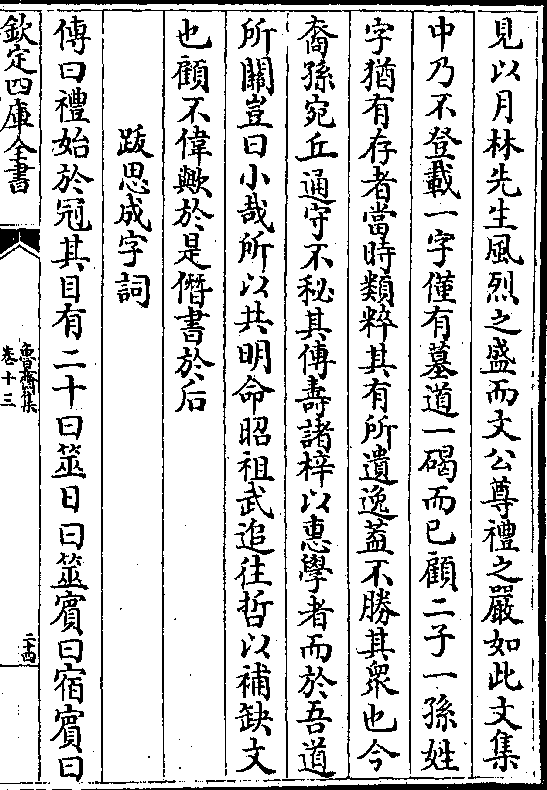 見以月林先生風烈之盛而文公尊禮之嚴如此文集
中乃不登載一字僅有墓道一碣而已顧二子一孫姓
字猶有存者當時類粹其有所遺逸蓋不勝其衆也今
裔孫宛丘通守不秘其傳壽諸梓以惠學者而於吾道
所關豈曰小哉所以共明命昭祖武追往哲以補缺文
也顧不偉歟於是僭書於后
跋思成字詞
傳曰禮始於冠其目有二十曰筮日曰筮賓曰宿賓曰
欽定四庫全書
魯齋集
卷十三
二十四